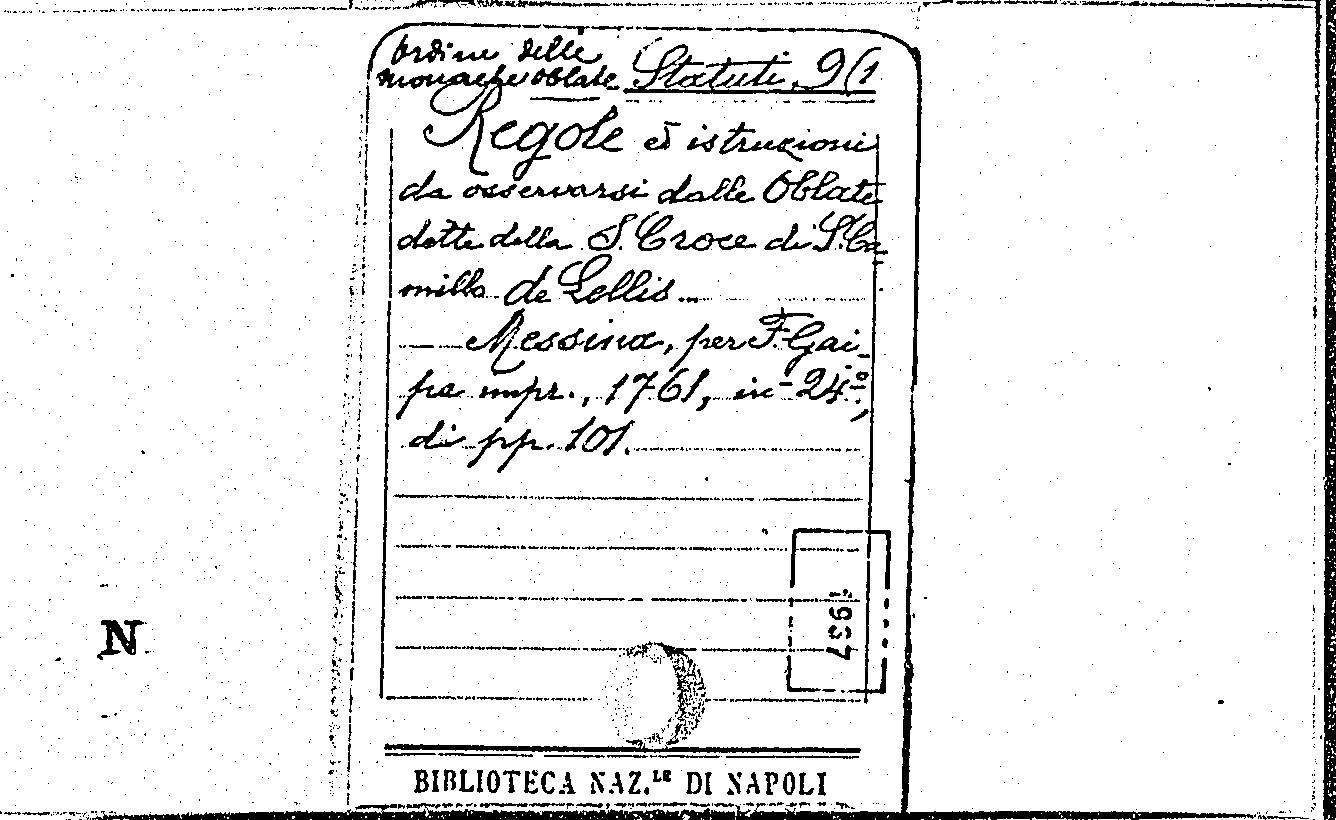 Ordine delle
monache oblate Statuti 9(1
Regole ed istruzioni
da osservarsi dalle Oblate
dette della S. Croce di S. Ca-
millo de Lellis
Messina, per F. Gai-
pa impr., 1761, in-24º,
di pp. 101.
1937
N
BIBLIOTECA NAZ.LE DI NAPOLI